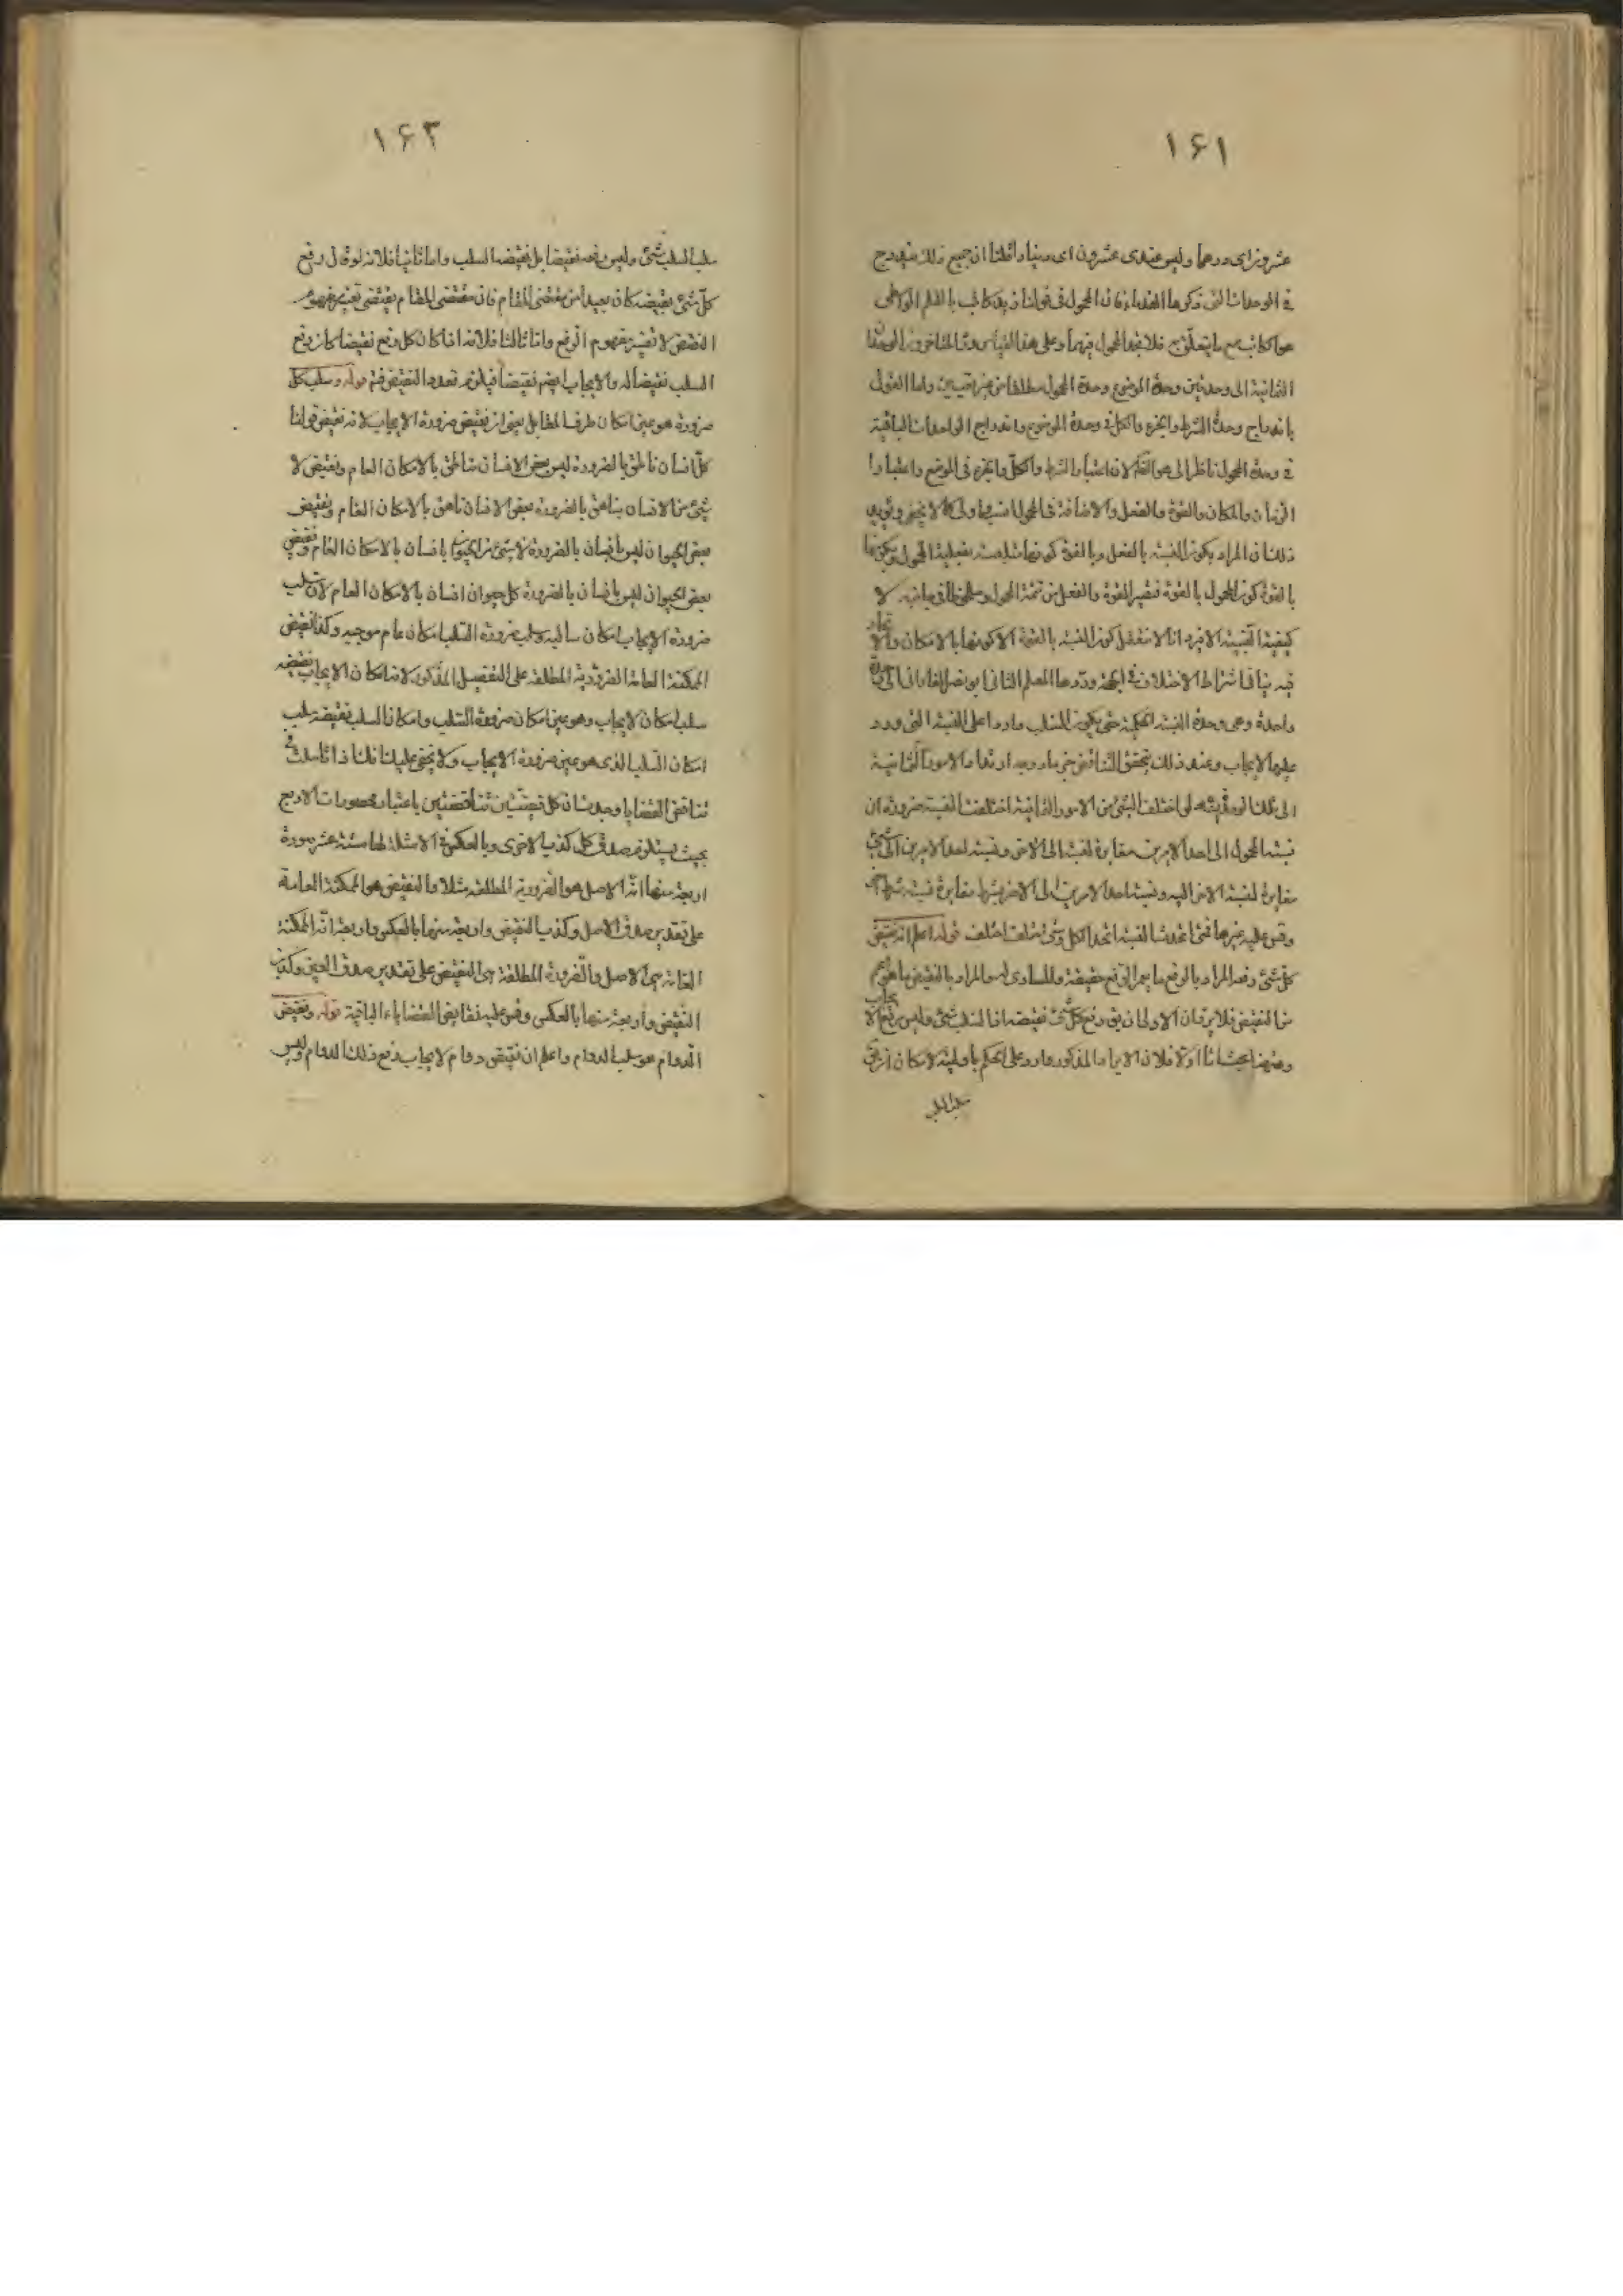 ۱۶۱
عشرون اى درهما وليس عندى عشرون اى دينارا قلنا ان جميع ذلك مندرج
فى الوحدات التى ذكرها القدماء فان المحمول فى قولنا زيد كاتب بالقلم الواسطى
هو الكاتب مع ما يتعلق به فلا يتحد المحول فيهما وعلى هذا القياس ورد المتاخرون الوحدات
الثمانية الى وحدتين وحدة الموضوع وحدة المحول مطلقا من غير تعيين واما القول
باندراج وحدة الشرط والجزء والكل فى وحدة الموضوع واندراج الواحدات الباقية
فى وحدة المحول ناظرا الى هو الظ لان اعتبار الشرط والكل والجزء فى الموضوع واعتبار
الزمان والمكان والقوة والفعل والاضافة فى المحول انسب واولى كما لا يخفى ويؤيد
ذلك ان المراد بكون النسبة بالفعل وبالقوة كونها متلبسة بفعلية المحول وبكونها
بالقوة كون المحول بالقوة فتصير القوة والفعل من تتمة المحول وملحوظا فى جانبه لا
كيفية النسبة الا فيه انا لا نتعقل كون النسبة بالقوة الا كونها بالامكان والاتحاد
فيه ينافى اشتراط الاختلاف فى الجهة وردها المعلم الثانى ابو نصر الفارابى الى وحدة
واحدة وهى وحدة النسبة الحكمية حتى يكون السلب واردا على النسبة التى ورد
عليها الايجاب وعند ذلك يتحقق التناقض جزما ووجه ارتفاع الامور الثمانية
الى تلك الوحدة انه لو اختلف الشئ من الامور الثمانية اختلفت النسبة ضرورة ان
نسبة المحول الى احد الامرين مغايرة لنسبته الى الاخر ونسبة احد الامرين الى شئ
مغايرة لنسبة الاخر اليه ونسبة احد الامرين الى الاخر بشرط مغايرة لنسبته بشرط اخر
وقس عليه غيرها فمتى اتحدت النسبة اتحد الكل ومتى اختلف اختلف قوله اعلم ان نقيض
كل شئ رفعه المراد بالرفع ما يعم الرفع حقيقة والمساوى له والمراد بالنقيض ما هو اعم
من النقيض فلا يرد ان الاولى ان يق رفع كل شئ نقيضه اذ السلب شئ وليس رفع الايجاب
وههنا ابحاث اما اولا فلان الايراد المذكور وارد على الحكم باولية لامكان ان يق
سلب السلب
۱۶۲
سلب السلب شئ وليس رفعه نقيضا بل نقيضه السلب واما ثانيا فلانه لو قال رفع
كل شئ نقيضه كان بعيدا من مقتضى المقام فان مقتضى المقام يقتضى تعيين مفهوم
النقيض لا تعيين مفهوم الرفع واما ثالثا فلانه اذا كان كل رفع نقيضا كان رفع
السلب نقيضا له والايجاب ايضم نقيضا فيلزم تعدد النقيض فتم قوله وسلب كل
ضرورة هو عين امكان طرف المقابل يعنى ان نقيض ضرورة الايجاب لانه نقيض قولنا
كل انسان ناطق بالضرورة ليس بعض الانسان ناطق بالامكان العام ونقيض لا
شئ من الانسان بناهق بالضرورة بعض الانسان ناهق بالامكان العام ونقيض
بعض الحيوان ليس بانسان بالضرورة لا شئ من الحيوان بانسان بالامكان العام ونقيض
بعض الحيوان ليس بانسان بالضرورة كل حيوان انسان بالامكان العام لان سلب
ضرورة الايجاب امكان سالبه وسلب ضرورة السلب امكان عام موجبه وكذا نقيض
الممكنة العامة الضرورية المطلقة على التفصيل المذكور لانه امكان الايجاب نقيضه
سلب امكان الايجاب وهو عين امكان ضرورة السلب وامكان السلب نقيضه سلب
امكان السلب الذى هو عين ضرورة الايجاب ولا يخفى عليك انك اذا تاملت فى
تناقض القضايا وجدت ان كل قضيتين متناقضتين باعتبار محصورات الاربع
بحيث يستلزم صدق كل كذب الاخرى وبالعكس فى الامثلة لها ستة عشر صورة
اربعة منها ان الاصل هو الضرورية المطلقة مثلا والنقيض هو الممكنة العامة
على تقدير صدق الاصل وكذب النقيض واربعة منها بالعكس واربعة ان الممكنة
العامة هى الاصل والضرورة المطلقة هى النقيض على تقدير صدق العين وكذب
النقيض واربعة منها بالعكس وقس عليه نقايض القضاياء الباقية قوله ونقيض
الدوام هو سلب الدوام واعلم ان نقيض دوام الايجاب رفع ذلك الدوام وليس